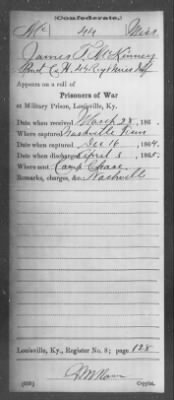 (Confederate.)
Mc 44 Miss
James F. McKinney
Co. H, 44 Regt Miss Inf
Appears on a roll of
Prisoners of War
at Military Prison, Louisville, Ky.
Date when received March 28, 186
Where captured Nashville Tenn
Date when captured Dec 16, 1864.
Date when discharged April 5, 1865.
Where sent Camp Chase
Remarks, charges, &c. Nashville
Louisville, Ky., Register No. 8; page 128
Copyist.